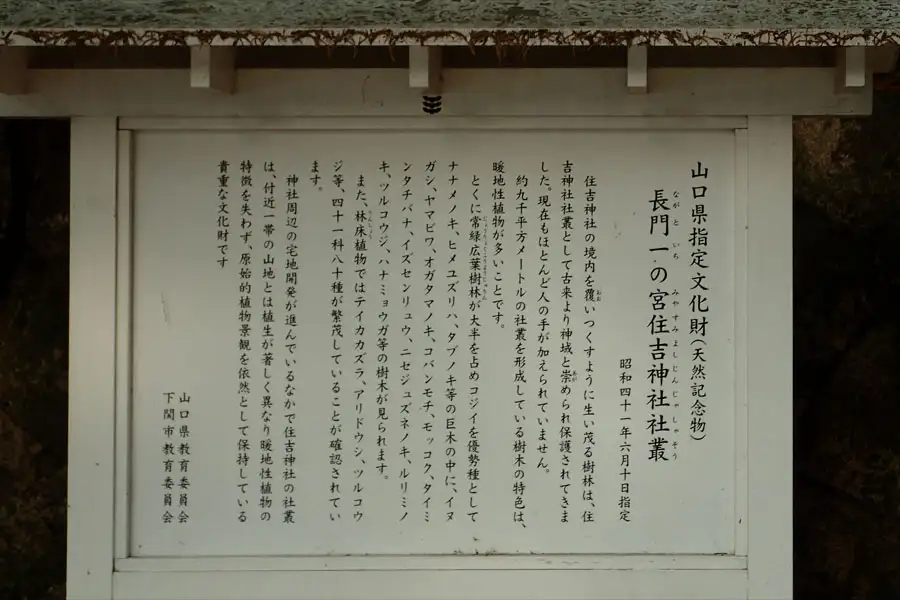 山口県指定文化財(天然記念物)
長門一の宮住吉神社社叢
ながといちのみやすみよしじんじゃしゃそう
昭和四十一年六月十日指定
住吉神社の境内を覆いつくすように生い茂る樹林は、住
吉神社社叢として古来より神域と崇められ保護されてきま
した。現在もほとんど人の手が加えられていません。
約九千平方メートルの社叢を形成している樹木の特色は、
暖地性植物が多いことです。
とくに常緑広葉樹林が大半を占めコジイを優勢種として
ナナメノキ、ヒメユズリハ、タブノキ等の巨木の中に、イヌ
ガシ、ヤマビワ、オガタマノキ、コバンモチ、モッコク、タイミ
ンタチバナ、イズセンリュウ、ニセジュズネノキ、ルリミノ
キ、ツルコウジ、ハナミョウガ等の樹木が見られます。
また、林床植物ではテイカカズラ、アリドウシ、ツルコウ
ジ等、四十一科八十種が繁茂していることが確認されてい
ます。
神社周辺の宅地開発が進んでいるなかで住吉神社の社叢
は、付近一帯の山地とは植生が著しく異なり暖地性植物の
特徴を失わず、原始的植物景観を依然として保持している
貴重な文化財です
山口県教育委員会
下関市教育委員会